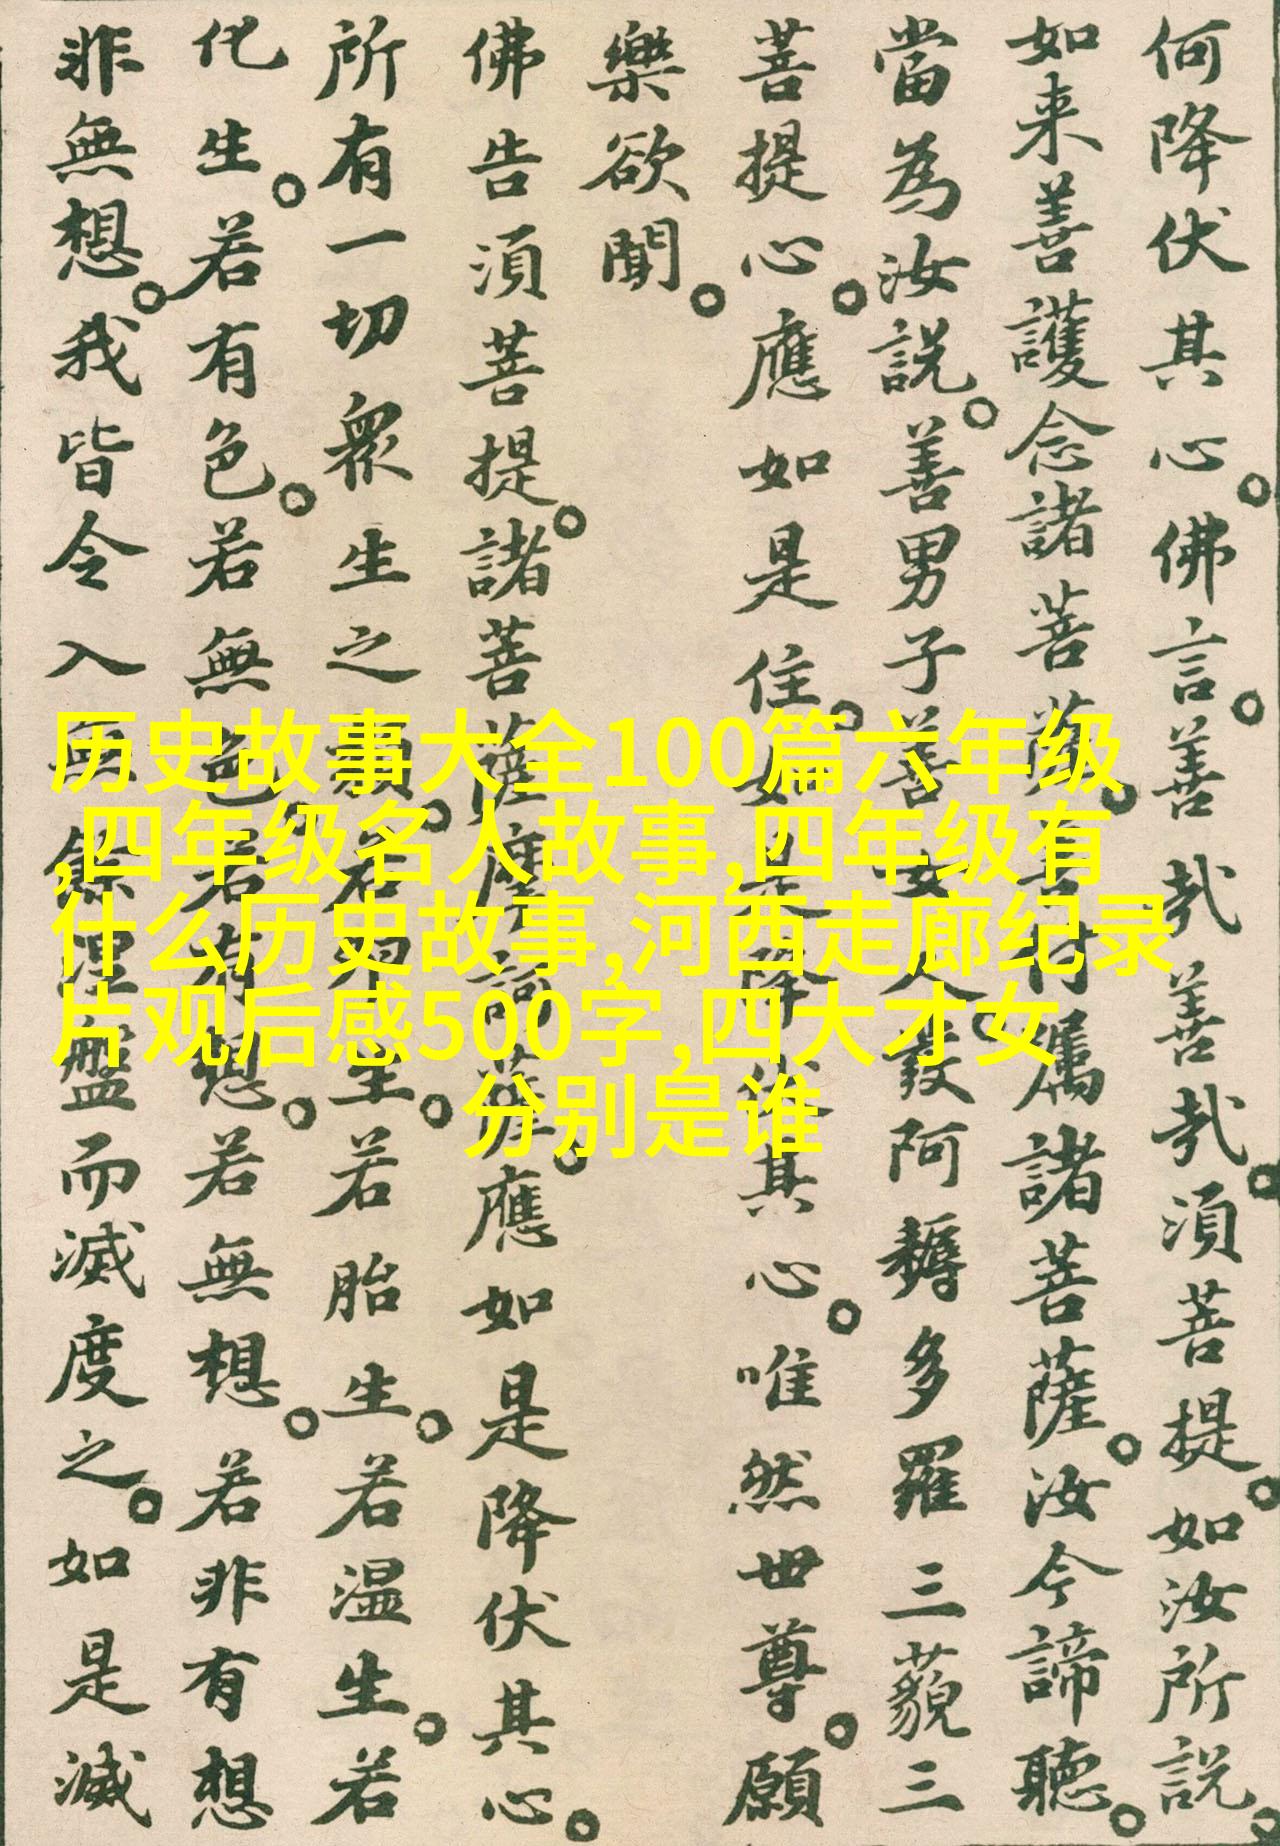 何降伏其心。佛言。善哉善哉。須菩提。如汝所説。
如来善護念諸菩薩。善付属諸菩薩。汝今諦聽。
當為汝説。善男子善女人。發阿耨多羅三藐三
菩提心。應如是住。如是降伏其心。唯然世尊。願
樂欲聞。
佛告須菩提。諸菩薩摩訶薩。應如是降伏其心。
所有一切眾生之類。若卵生。若胎生。若温生。若
化生。若有色。若無色。若有想。若無想。若非有想
非無想。我皆令入無餘涅盤而滅度之。如是滅
历史故事大全100篇六年级
,四年级名人故事,四年级有
什么历史故事,河西走廊纪录
片观后感500字,四大才女
分别是谁